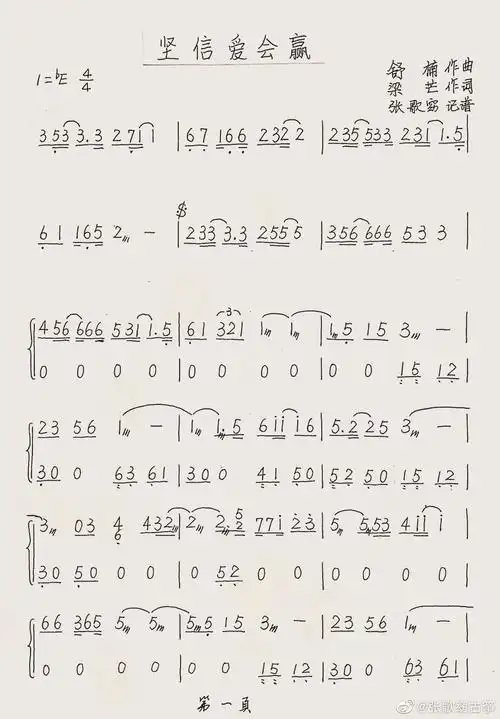 坚信爱会赢
1=♭E 4/4
舒楠 作曲
梁芒 作词
张歌窈 记谱
353 3.3 27i i | 67 166 232 2 | 235 533 231 1.5 |
61 165 2 — | 233 3.3 255 5 | 356 666 53 3 |
456 666 531 1.5 | 61 321 1 1 | 1.5 15 3 — |
0 0 0 0 | 0 0 0 0 | 0 0 15 12 |
23 56 1 — | 1 1.5 6ii i6 | 5.2 25 3 — |
30 0 63 61 | 30 0 41 50 | 52 50 15 12 |
3 03 4 432 | 2 2. 77i 23 | 5 553 4ii i |
30 50 0 0 | 0 52 0 0 | 0 0 0 0 |
66 365 5 5 | 5.5 15 3 — | 23 56 1 — |
0 0 0 0 | 0 0 15 12 | 30 0 63 61 |
第一頁